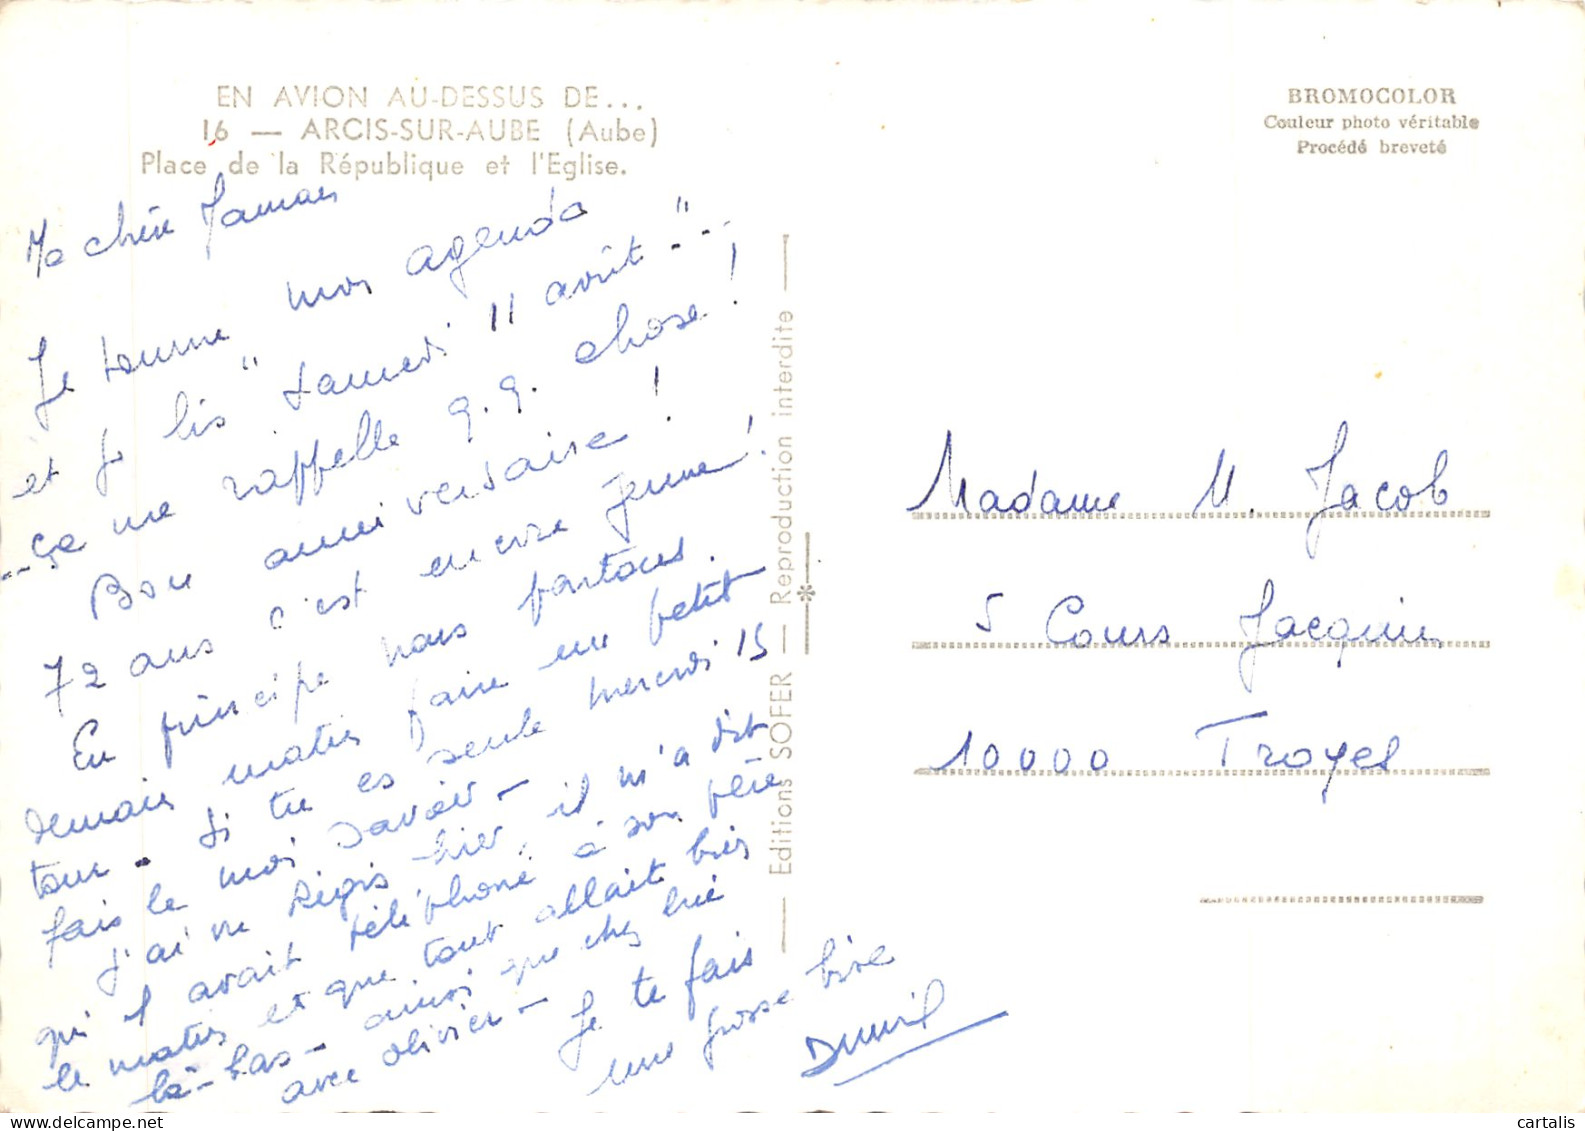 EN AVION AU-DESSUS DE...
16 — ARCIS-SUR-AUBE (Aube)
Place de la République et l'Eglise.
BROMOCOLOR
Couleur photo véritable
Procédé breveté
Ma chère Maman
Je tourne mon agenda
et je lis "samedi 11 août"...
...ça me rappelle q.q. chose !
Bon anniversaire !
72 ans c'est encore jeune !
En principe nous partons
demain matin faire un petit
tour - Si tu es seule mercredi 15
fais le moi savoir -
J'ai vu Régis hier, il m'a dit
qu'il avait téléphoné à son père
le matin et que tout allait bien
là-bas - ainsi que chez lui
avec Olivier - Je te fais
une grosse bise
Editions SOFER — Reproduction interdite
Madame M. Jacob
5 Cours Jacquin
10000 Troyes
cartalis